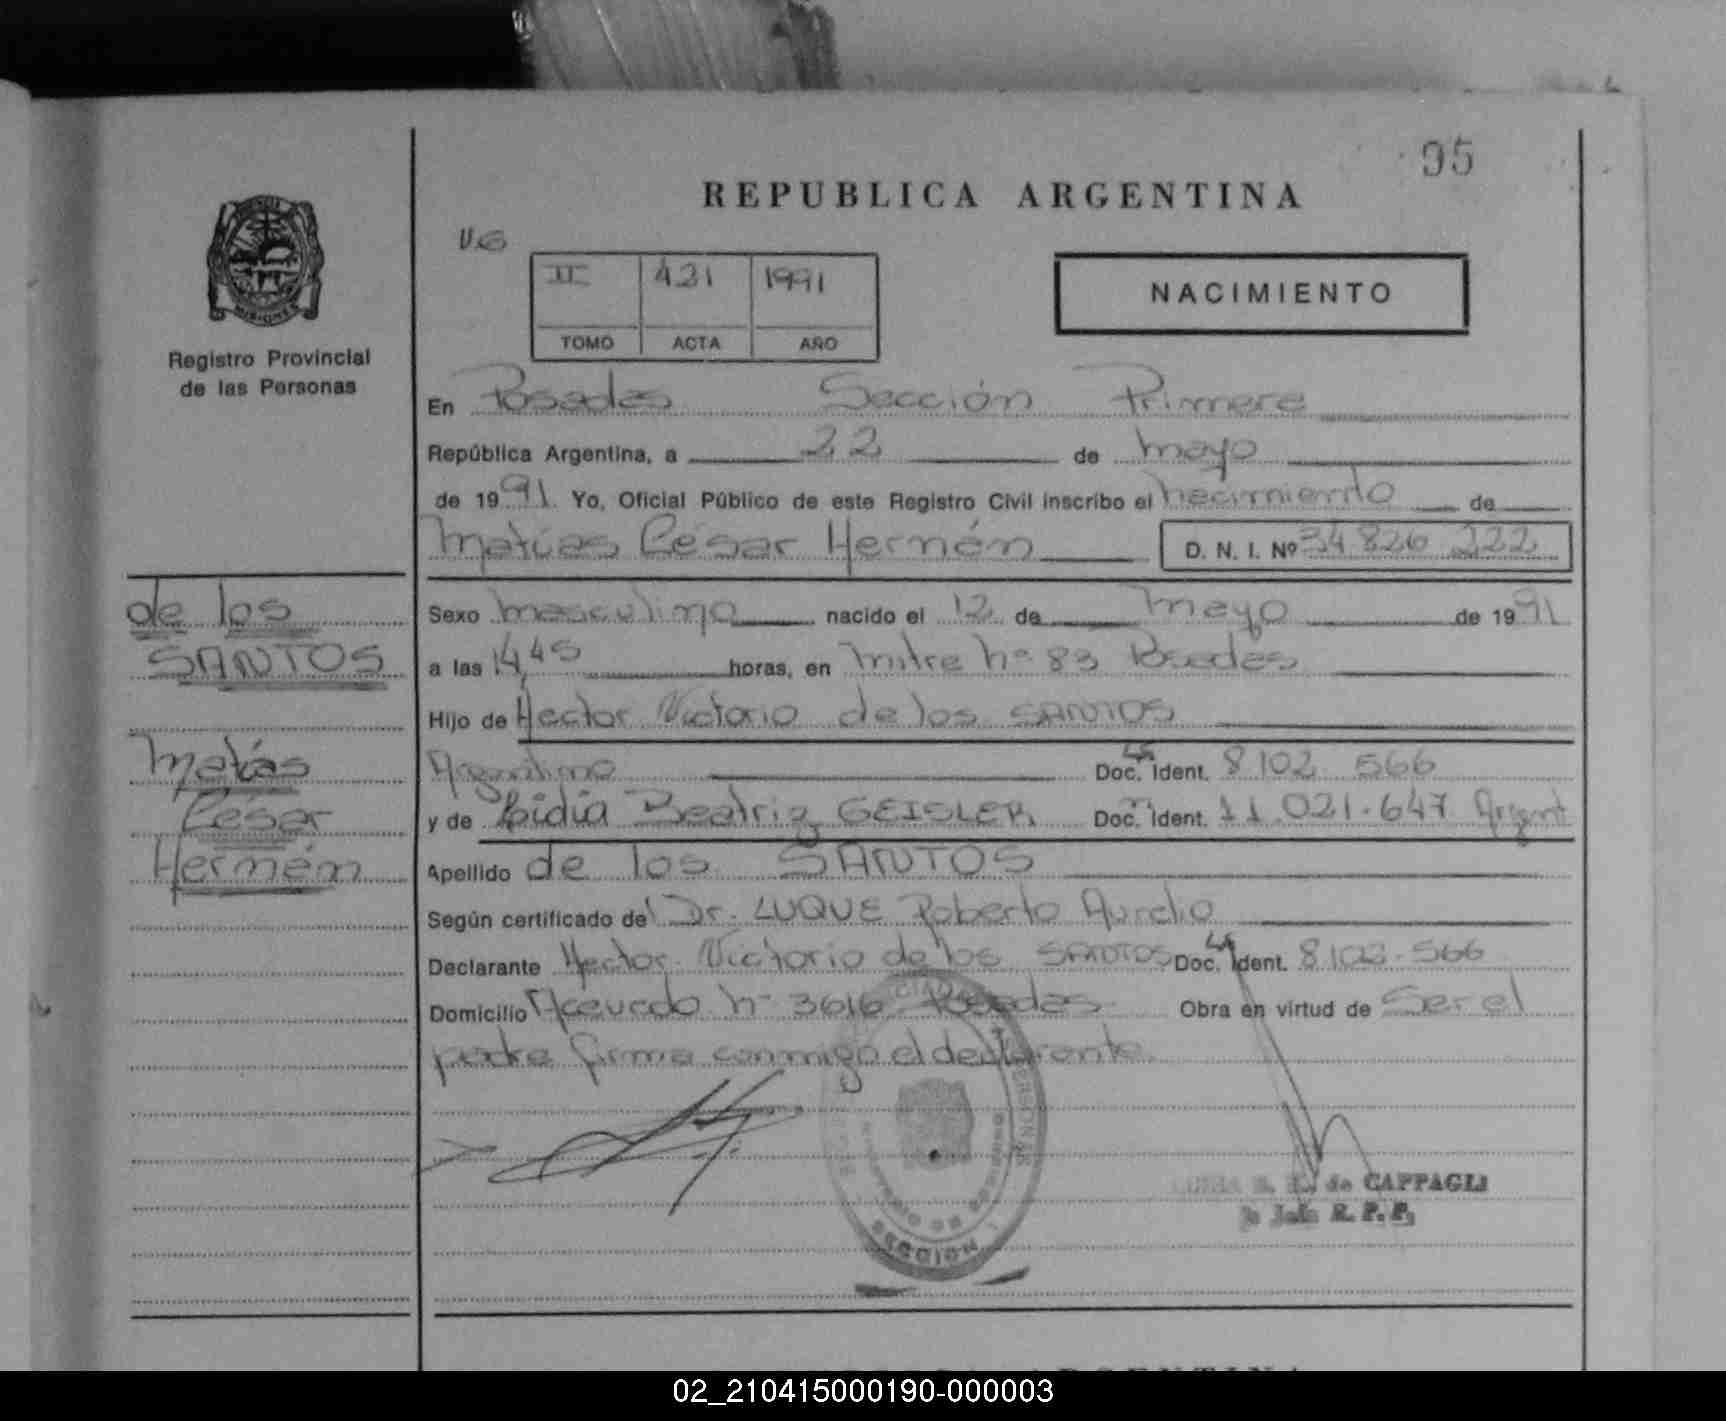 95
REPUBLICA ARGENTINA
NACIMIENTO
II 421 1991
TOMO ACTA AÑO
MISIONES
Registro Provincial
de las Personas
En Posadas Sección Primera
República Argentina, a 22 de mayo
de 1991. Yo, Oficial Público de este Registro Civil inscribo el nacimiento de
Matías César Hernán D. N. I. Nº 34 826 222
de los
SANTOS
Matías
César
Hernán
Sexo masculino nacido el 12 de mayo de 1991
a las 14,45 horas, en Mitre nº 83 Posadas
Hijo de Hector Victorio de los SANTOS
Argentino Doc. Ident. 8 102 566
y de Lidia Beatriz GEISLER Doc. Ident. 11.021.647 Argent
Apellido de los SANTOS
Según certificado del Dr. LUQUE Roberto Aurelio
Declarante Hector Victorio de los SANTOS Doc. Ident. 8 102.566
Domicilio Acevedo nº 3616 Posadas Obra en virtud de ser el
padre firma conmigo el declarante.
SECCION
de CAPPAGLI
Jefe R. P. P.
02_210415000190-000003